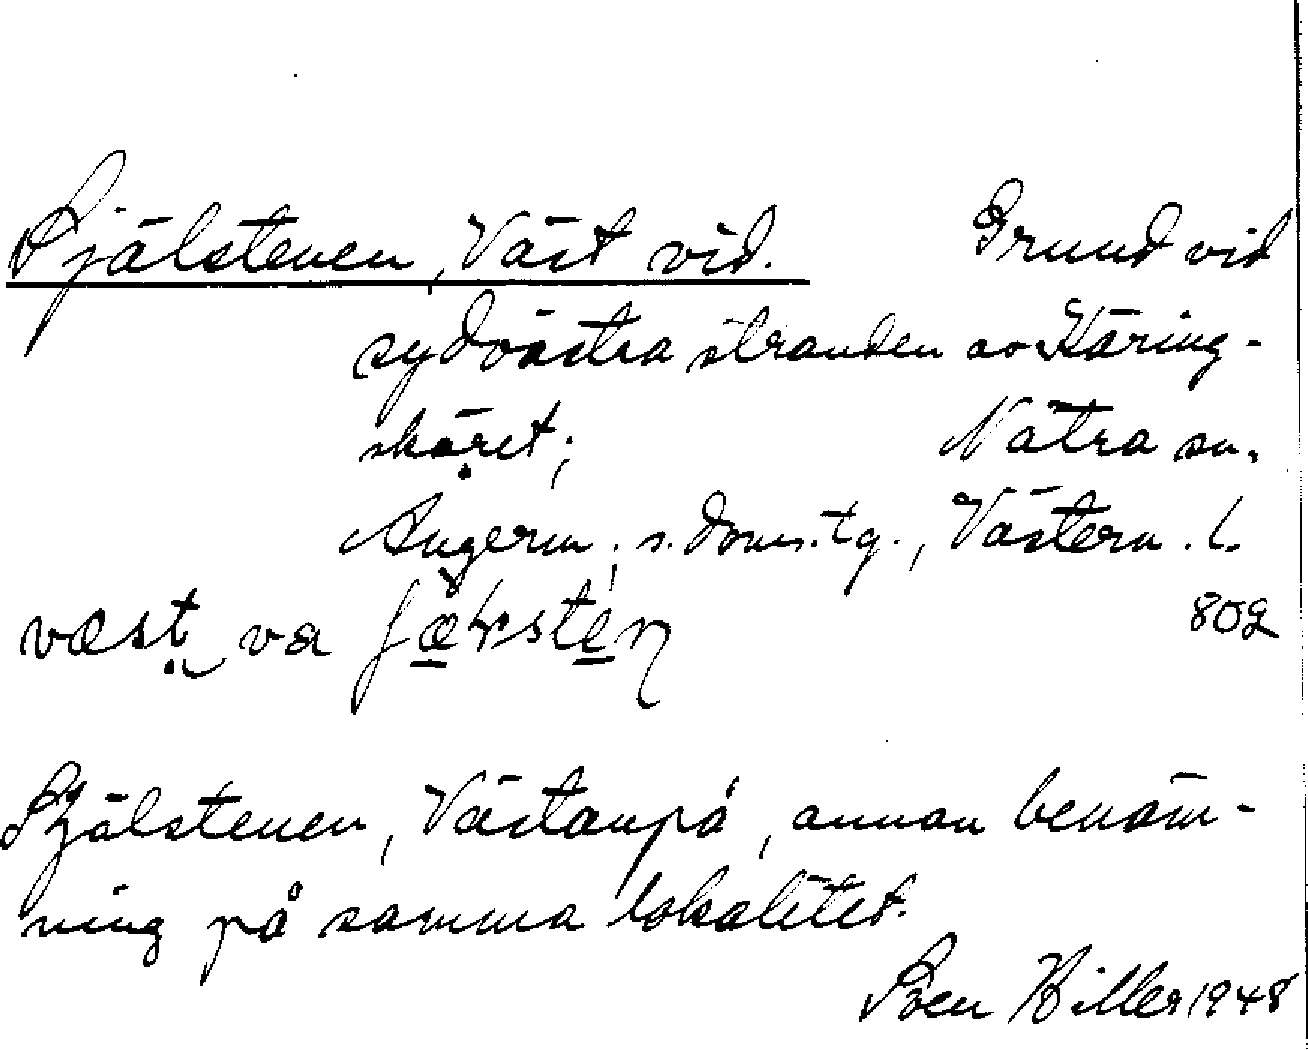 Själstenen, Väst vid. Grund vid
sydvästra stranden av Käring-
skäret; Nätra sn.
Ångerm. s. doms. tg., Västern. l.
væst va 802
Själstenen, Västanpå, annan benäm-
ning på samma lokalitet.
Sven Hiller 1948